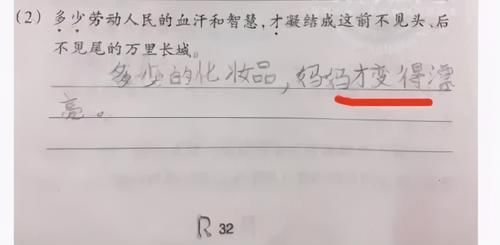 (2) 多少劳动人民的血汗和智慧,才凝结成这前不见头、后
不见尾的万里长城。
多少的化妆品,妈妈才变得漂
亮。
R 32